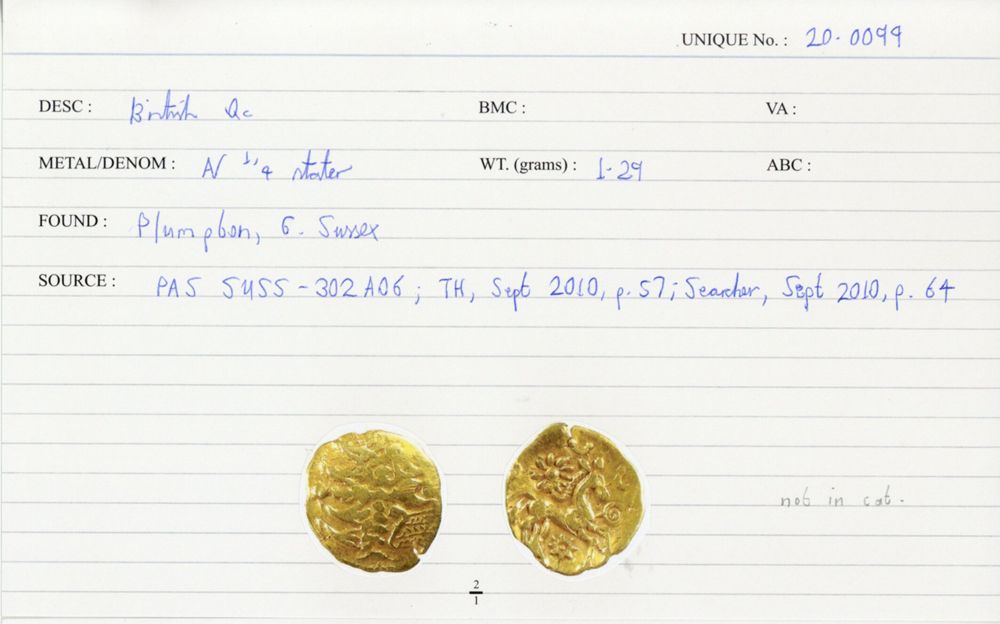 UNIQUE No. : 20-0099
DESC : British Qc BMC : VA :
METAL/DENOM : N 1/4 stater WT. (grams) : 1.29 ABC :
FOUND : Plumpton, E. Sussex
SOURCE : PAS SUSS-302A06; TH, Sept 2010, p.57; Searcher, Sept 2010, p. 64
not in cat.
2
1